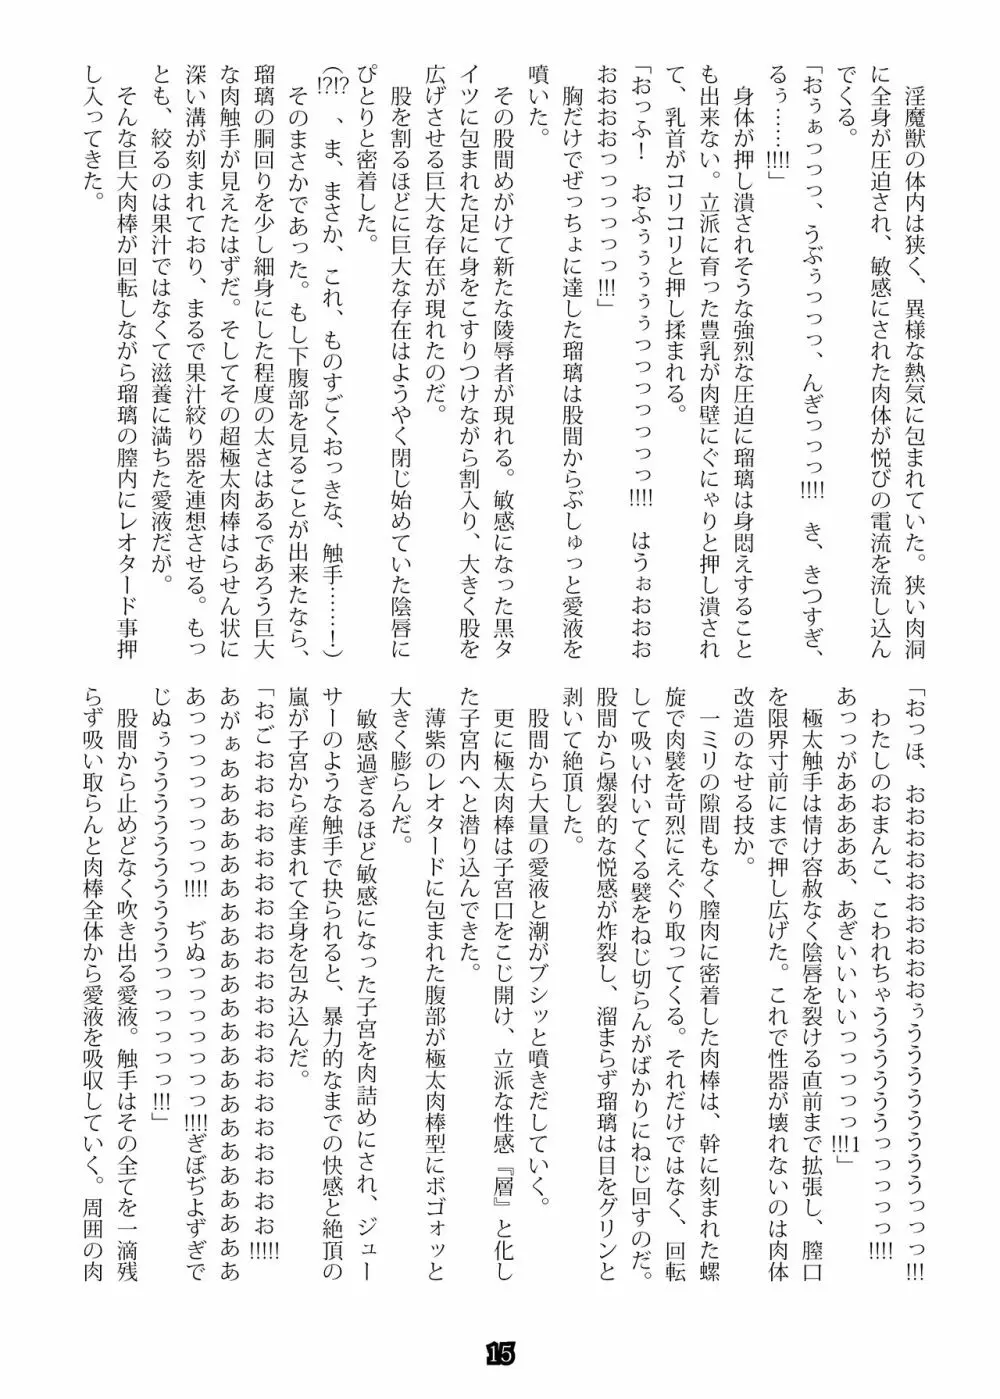 淫魔獣の体内は狭く、異様な熱気に包まれていた。狭い肉洞
に全身が圧迫され、敏感にされた肉体が悦びの電流を流し込ん
でくる。
「おぅぁっっっ、うぶぅっっっ、んぎっっっ!!!!　き、きつすぎ、
るぅ……!!!!」
身体が押し潰されそうな強烈な圧迫に瑠璃は身悶えすること
も出来ない。立派に育った豊乳が肉壁にぐにゃりと押し潰され
て、乳首がコリコリと押し揉まれる。
「おっふ！　おふぅぅぅぅっっっっっっ!!!!　はうぉおおお
おおおおっっっっっ!!!」
胸だけでぜっちょに達した瑠璃は股間からぶしゅっと愛液を
噴いた。
その股間めがけて新たな陵辱者が現れる。敏感になった黒タ
イツに包まれた足に身をこすりつけながら割入り、大きく股を
広げさせる巨大な存在が現れたのだ。
股を割るほどに巨大な存在はようやく閉じ始めていた陰唇に
ぴとりと密着した。
(!?!?　、ま、まさか、これ、ものすごくおっきな、触手……！)
そのまさかであった。もし下腹部を見ることが出来たなら、
瑠璃の胴回りを少し細身にした程度の太さはあるであろう巨大
な肉触手が見えたはずだ。そしてその超極太肉棒はらせん状に
深い溝が刻まれており、まるで果汁絞り器を連想させる。もっ
とも、絞るのは果汁ではなくて滋養に満ちた愛液だが。
そんな巨大肉棒が回転しながら瑠璃の膣内にレオタード事押
し入ってきた。
「おっほ、おおおおおおおおおおぅうううううううっっっ!!!
わたしのおまんこ、こわれちゃううううううっっっっっ!!!!
あっっがあああああ、あぎいいいいっっっっっ!!!1」
極太触手は情け容赦なく陰唇を裂ける直前まで拡張し、膣口
を限界寸前にまで押し広げた。これで性器が壊れないのは肉体
改造のなせる技か。
一ミリの隙間もなく膣肉に密着した肉棒は、幹に刻まれた螺
旋で肉襞を苛烈にえぐり取ってくる。それだけではなく、回転
して吸い付いてくる襞をねじ切らんがばかりにねじ回すのだ。
股間から爆裂的な悦感が炸裂し、溜まらず瑠璃は目をグリンと
剥いて絶頂した。
股間から大量の愛液と潮がブシッと噴きだしていく。
更に極太肉棒は子宮口をこじ開け、立派な性感『層』と化し
た子宮内へと潜り込んできた。
薄紫のレオタードに包まれた腹部が極太肉棒型にボゴォッと
大きく膨らんだ。
敏感過ぎるほど敏感になった子宮を肉詰めにされ、ジュー
サーのような触手で抉られると、暴力的なまでの快感と絶頂の
嵐が子宮から産まれて全身を包み込んだ。
「おごおおおおおおおおおおおおおおおおおおおおお!!!!!
あがぁああああああああああああああああああああああ
あっっっっっっっ!!!!　ぢぬっっっっっっっ!!!!ぎぼぢよずぎで
じぬぅうううううううううううっっっっっっ!!!」
股間から止めどなく吹き出る愛液。触手はその全てを一滴残
らず吸い取らんと肉棒全体から愛液を吸収していく。周囲の肉
15